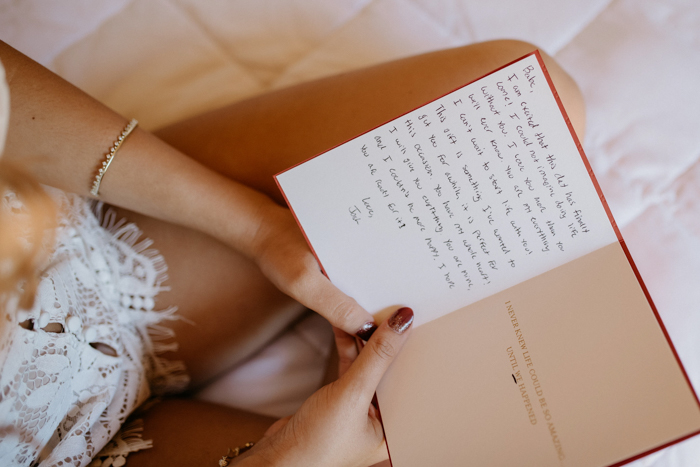 Babe,
I am excited that this day has finally
come! I could not imagine doing life
without you. I love you more than you
will ever know. You are my everything
I can't wait to start life with you!
This gift is something I've wanted to
get you for awhile, it is perfect for
this occasion. You have my whole heart!
I will give you everything. You are mine,
and I couldn't be more happy. I hope
you all ready for it!
Love,
Josh
I NEVER KNEW LIFE COULD BE SO AMAZING
UNTIL WE HAPPENED